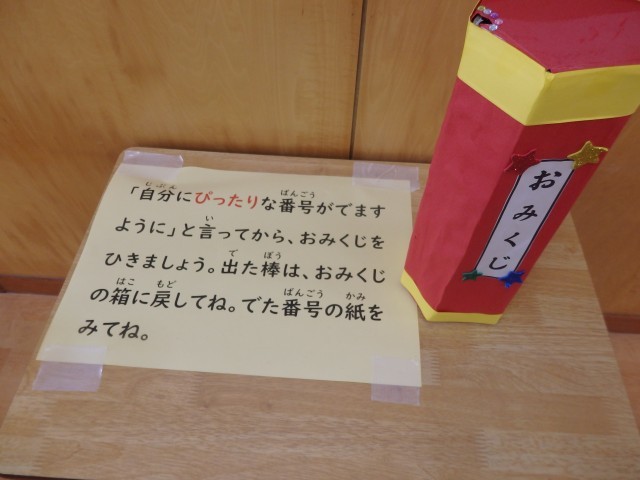 「自分にぴったりな番号がでます
ように」と言ってから、おみくじを
ひきましょう。出た棒は、おみくじ
の箱に戻してね。でた番号の紙を
みてね。
おみくじ